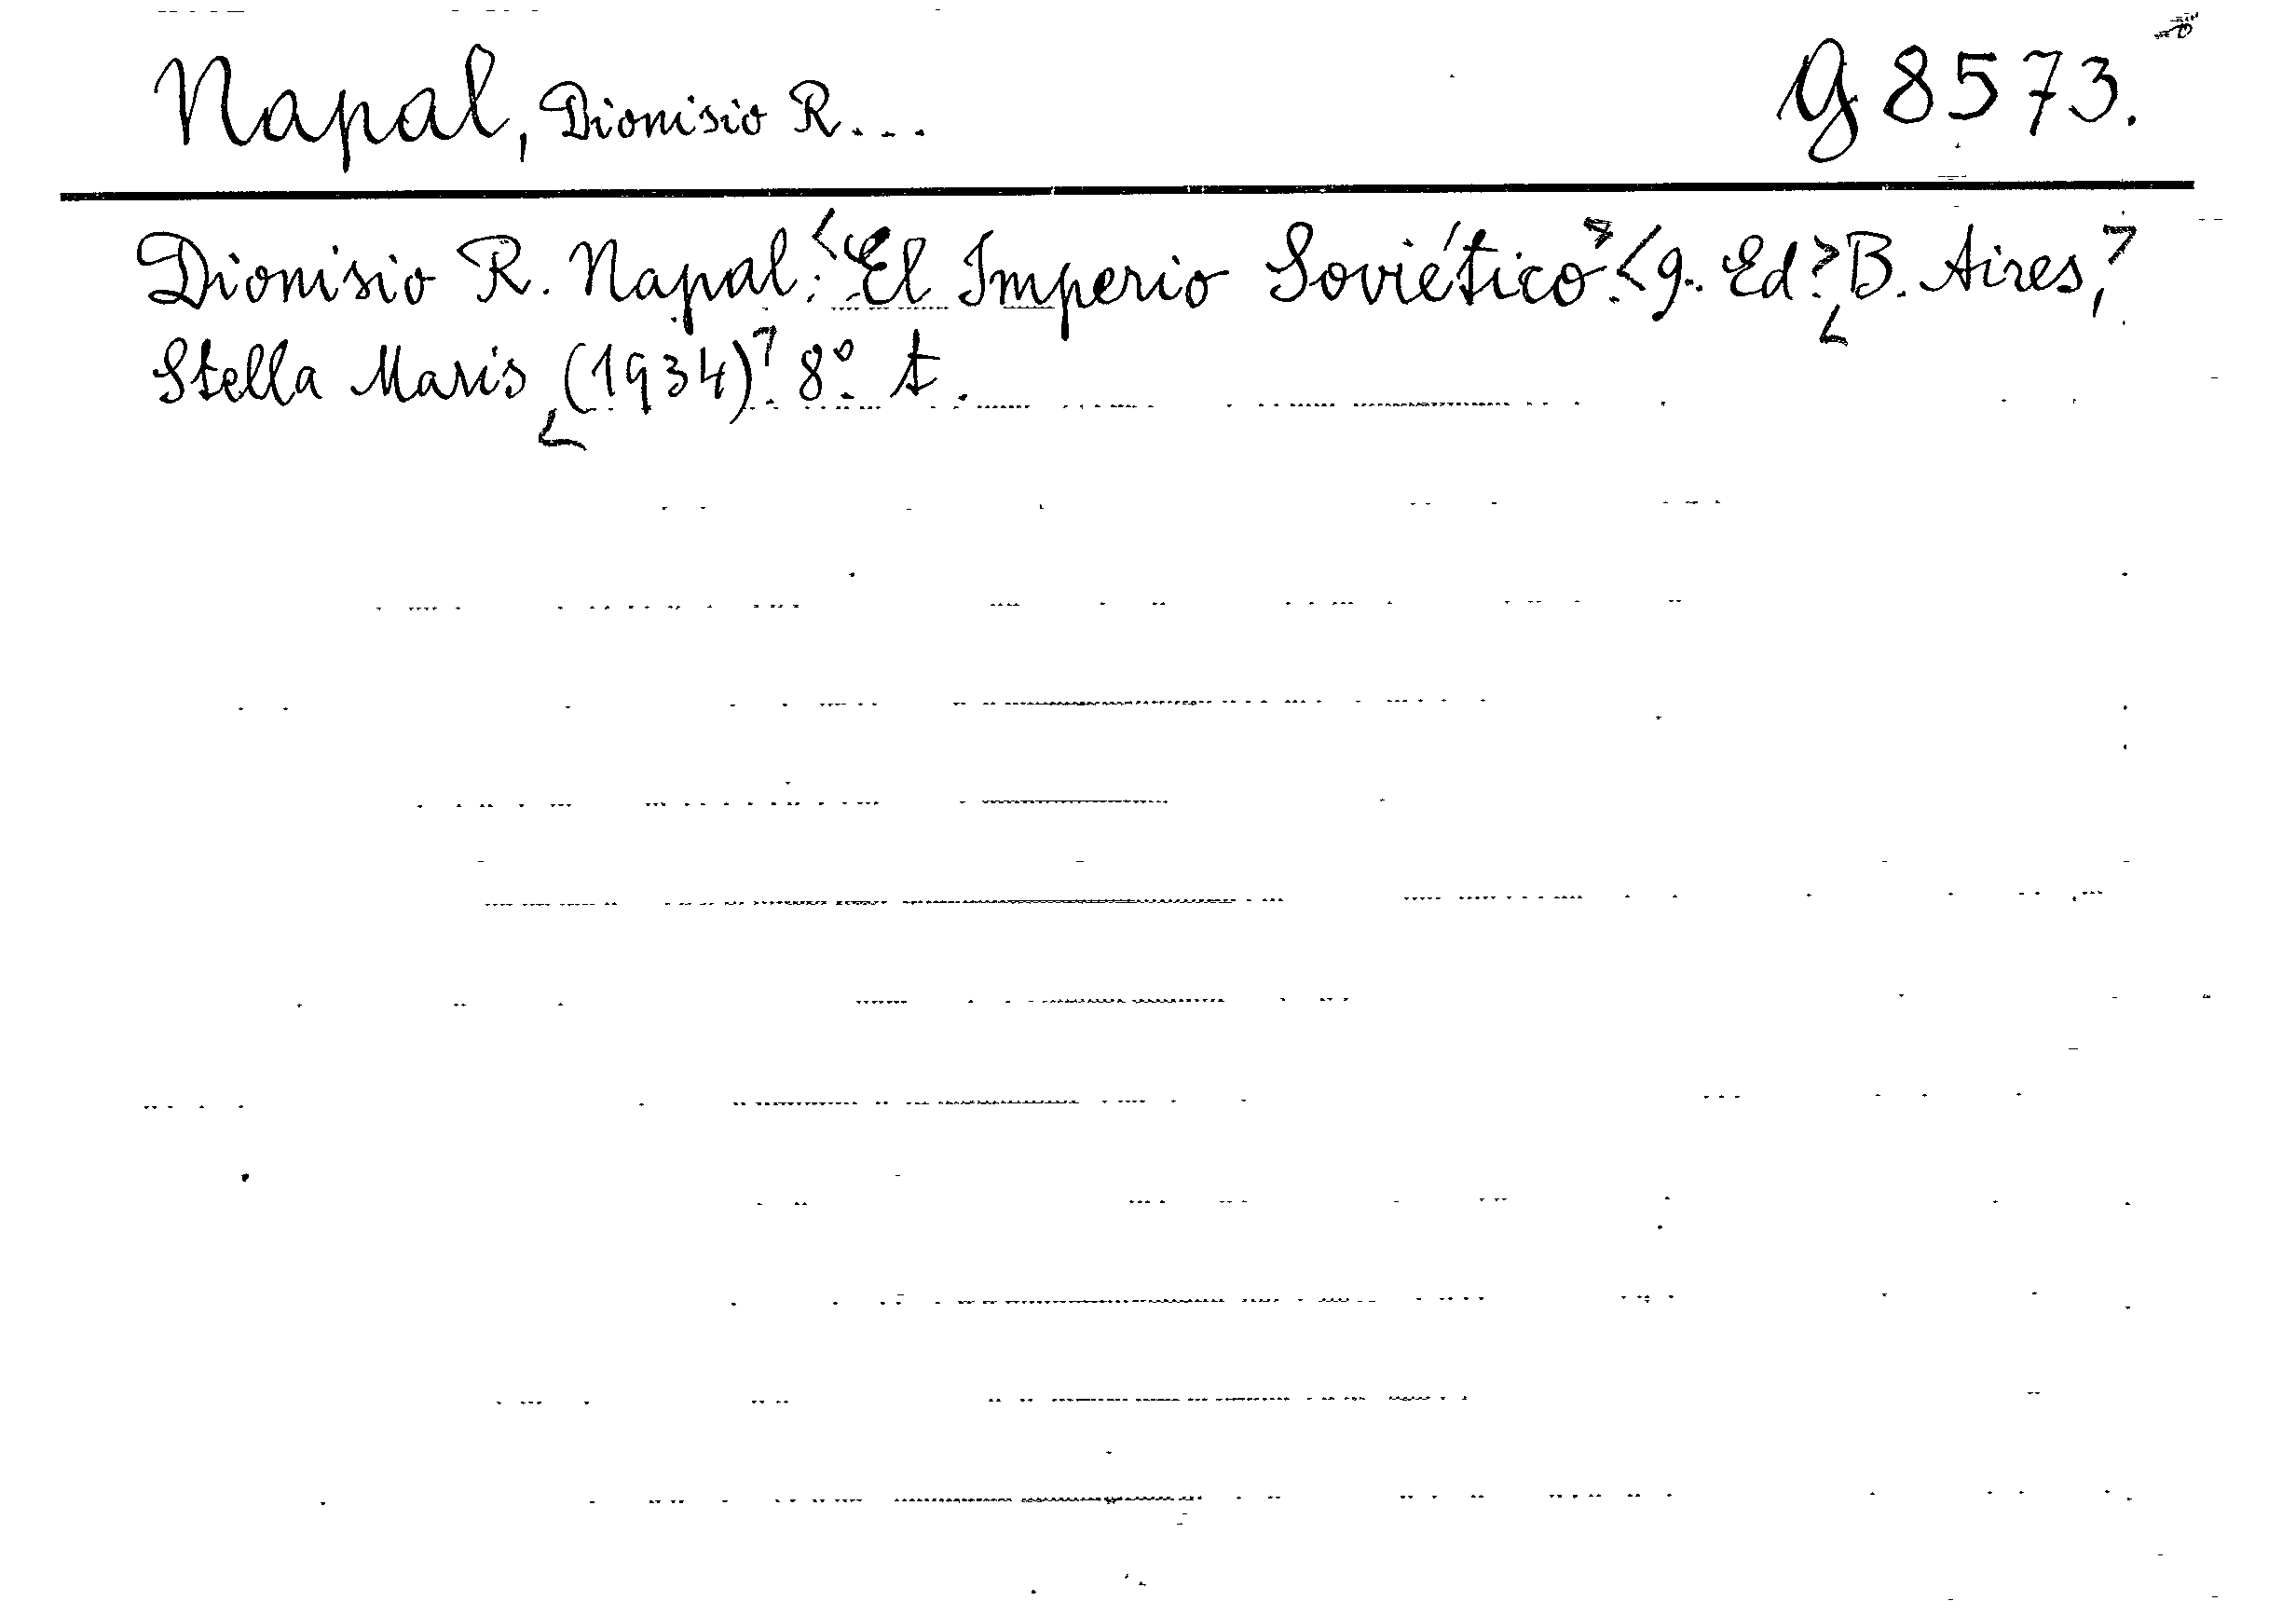 Napal, Dionisio R... G 8573.
Dionisio R. Napal: <El Imperio Soviético>. <9. Ed.> B. Aires,>
Stella Maris <(1934)>. 8°. t.